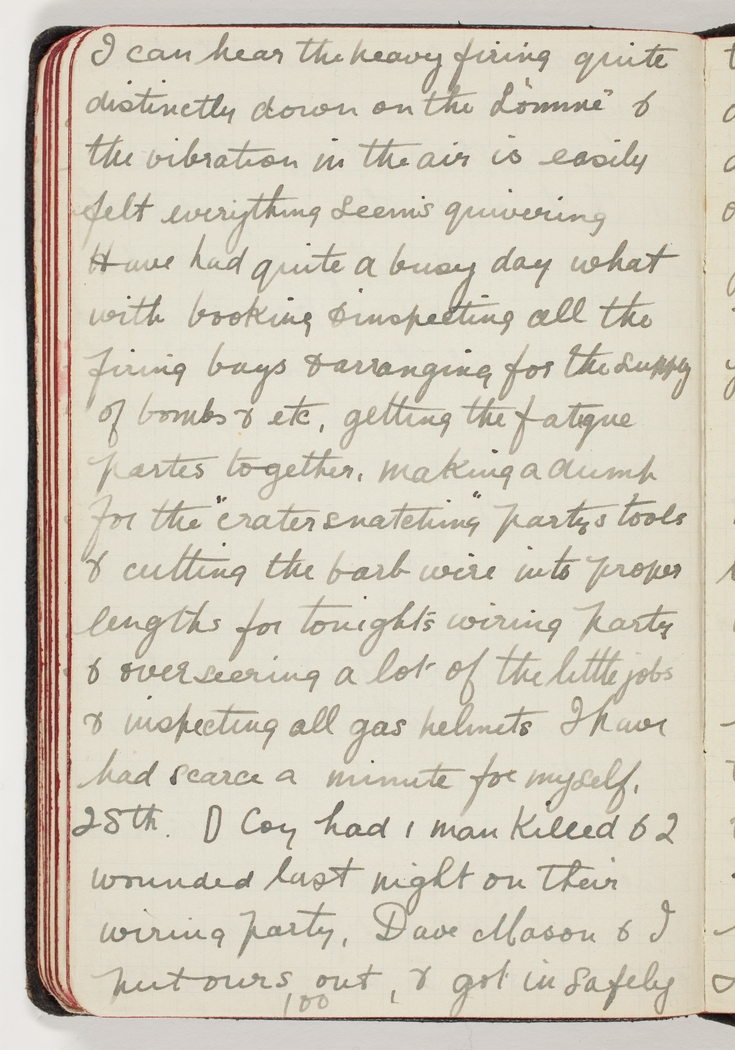 I can hear the heavy firing quite
distinctly down on the "Somme" &
the vibration in the air is easily
felt everything seems quivering
Have had quite a busy day what
with booking & inspecting all the
firing bays & arranging for the supply
of bombs & etc, getting the fatigue
partes together, making a dump
for the "crater snatching" partys tools
& cutting the barb wire into proper
lengths for tonight's wiring party
& overseering a lot of the little jobs
& inspecting all gas helmets I have
had scarce a minute for myself.
28th. D Coy had 1 man killed & 2
wounded last night on their
wiring party, Dave Mason & I
put ours out, & got in safely
100